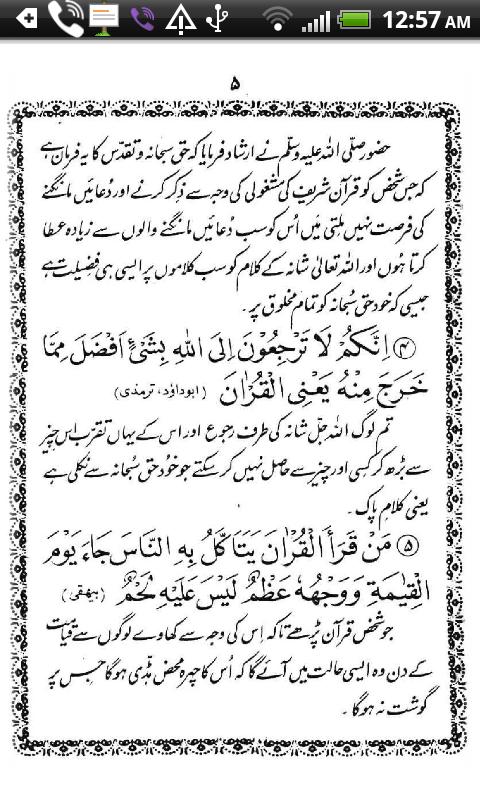 12:57 AM
۵
حضور صلّی اللہ علیہ وسلّم نے ارشاد فرمایا کہ حق سبحانہ وتقدّس کا یہ فرمان ہے
کہ جس شخص کو قرآن شریف کی مشغولی کی وجہ سے ذکر کرنے اور دُعائیں مانگنے
کی فرصت نہیں ملتی میں اُس کو سب دُعائیں مانگنے والوں سے زیادہ عطا
کرتا ہُوں اور اللہ تعالیٰ شانہ کے کلام کو سب کلاموں پر ایسی ہی فضیلت ہے
جیسی کہ خود حق سُبحانہ کو تمام مخلوق پر۔
④ اِنَّكُمْ لَا تَرْجِعُوْنَ اِلَى اللّٰهِ بِشَيْءٍ اَفْضَلَ مِمَّا
خَرَجَ مِنْهُ يَعْنِى الْقُرْاٰنَ (ابوداؤد، ترمذی)
تم لوگ اللہ جلّ شانہ کی طرف رجوع اور اس کے یہاں تقرّب اس چیز
سے بڑھ کر کسی اور چیز سے حاصل نہیں کر سکتے جو خُود حق سُبحانہ سے نکلی ہے
یعنی کلام پاک۔
⑤ مَنْ قَرَأَ الْقُرْاٰنَ يَتَأَكَّلُ بِهِ النَّاسَ جَآءَ يَوْمَ
الْقِيٰمَةِ وَوَجْهُهٗ عَظْمٌ لَيْسَ عَلَيْهِ لَحْمٌ (بیہقی)
جو شخص قرآن پڑھے تاکہ اس کی وجہ سے کھاوے لوگوں سے قیامت
کے دن وہ ایسی حالت میں آئے گا کہ اُس کا چہرہ محض ہڈی ہو گا جس پر
گوشت نہ ہو گا۔